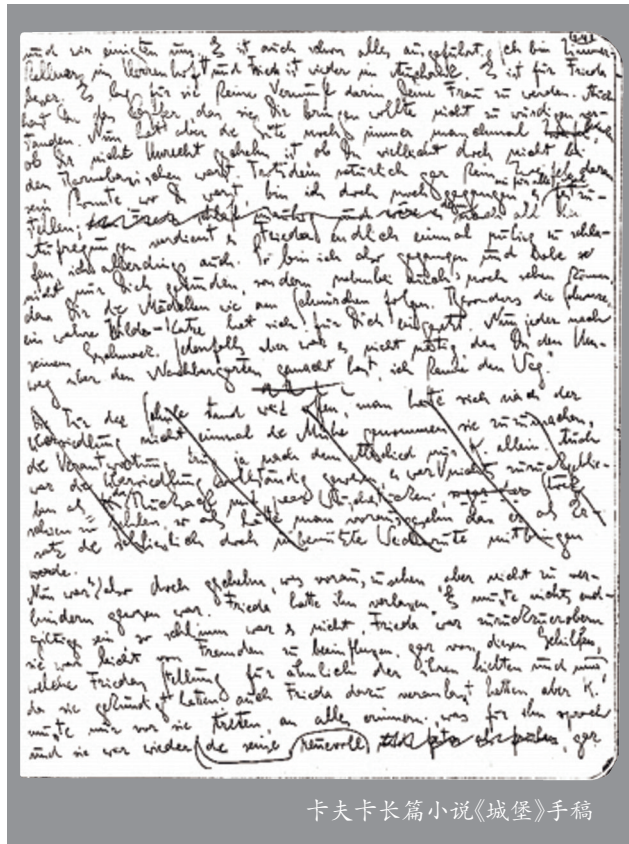 und wir einigten uns. Es ist auch schon alles ausgeführt. Ich bin Zimmer-
kellner im Herrenhof und Frieda ist wieder im Ausschank. Es ist für Frieda
besser. Es lag für sie keine Vernunft darin Deine Frau zu werden. Auch
hast Du das Opfer, das sie Dir bringen wollte nicht zu würdigen ver-
standen. Nun hat aber die Gute noch immer manchmal
ob Dir nicht Unrecht geschehen ist ob Du vielleicht doch nicht bei
den Barnabasischen warst. Trotzdem natürlich gar kein Zweifel darin
sein konnte wo Du warst, bin ich doch noch gegangen, es ein für allemal festzu-
stellen; denn nach all den
Aufregungen verdient es Frieda endlich einmal ruhig zu schla-
fen ich allerdings auch. So bin ich also gegangen und habe
nicht nur Dich gefunden, sondern nebenbei auch noch sehen können,
dass Dir die Mädchen wie am Schnürchen folgen. Besonders die Schwarze,
eine wahre Wildkatze, hat sich für Dich eingesetzt. Nun jeder nach
seinem Geschmack. Jedenfalls aber war es nicht nötig dass Du den Um-
weg über den Nachbargarten gemacht hast, ich kenne den Weg."
Die Tür der Schule stand weit offen, man hatte sich nach der
Übersiedlung nicht einmal die Mühe genommen sie zuzumachen,
die Verantwortung trug ja nach dem Abschied nur K. allein. Auch
war die Übersiedlung vollständig gewesen, es war nichts zurückgeblie-
ben als der Rucksack mit paar Wäschestücken; Stock
schien zu fehlen, so als hätte man vorausgesehn dass er als Er-
satz die schliesslich doch unbenützte Weidenrute mitbringen
werde.
Nun war es also doch geschehn, was vorauszusehen aber nicht zu ver-
hindern gewesen war. Frieda hatte ihn verlassen. Es musste nichts end-
giltiges sein, so schlimm war es nicht, Frieda war zurückzuerobern
sie war leicht von Fremden zu beeinflussen, gar von diesen Gehilfen,
welche Friedas Stellung für ähnlich der ihren hielten und nun
da sie gekündigt hatten auch Frieda dazu veranlasst hatten, aber K.
musste nur vor sie treten, an alles erinnern, was für ihn sprach
und sie war wieder die seine reuevoll, gar
卡夫卡长篇小说《城堡》手稿